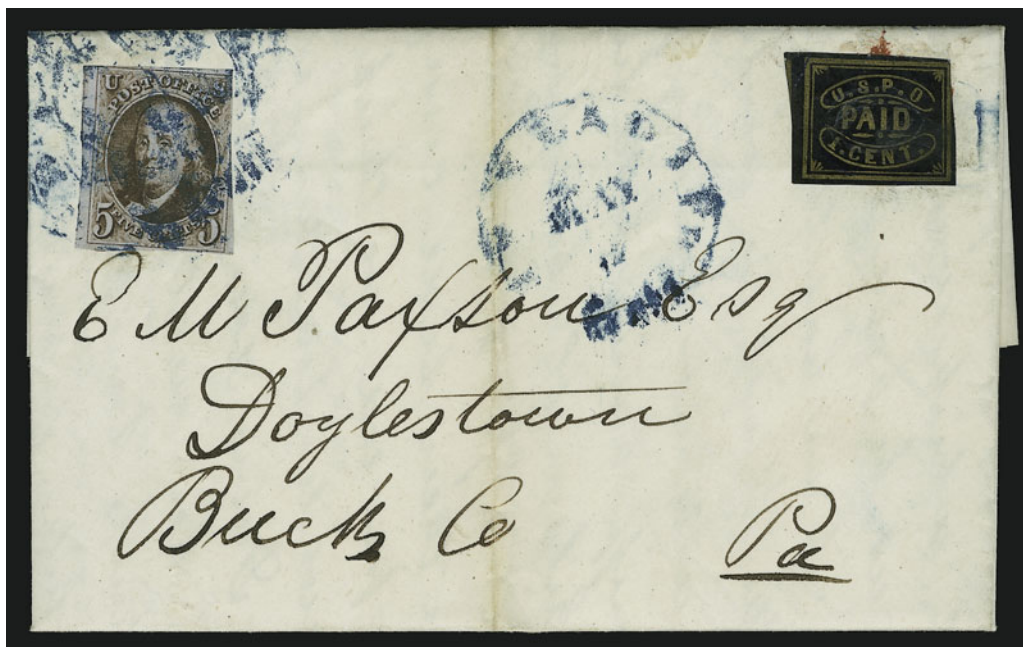 U S
POST OFFICE
5 FIVE CENTS 5
U.S.P.O
PAID
1.CENT.
MAY
E M Paxson Esq
Doylestown
Bucks Co
Pa